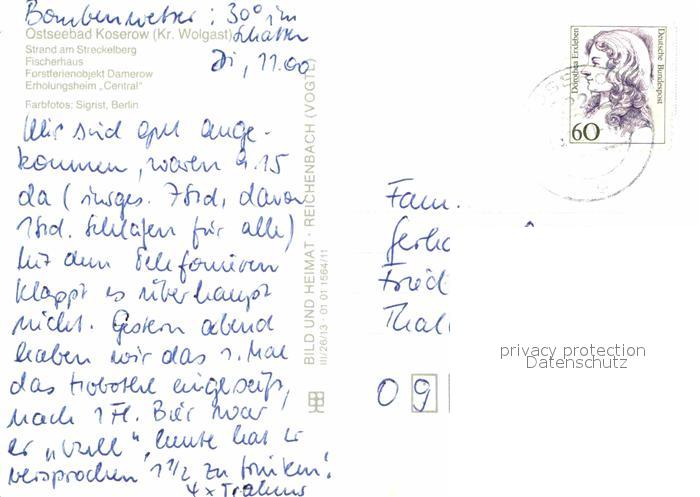 Bombenwetter: 30° im
Schatten
Ostseebad Koserow (Kr. Wolgast)
Strand am Streckelberg
Fischerhaus
Forstferienobjekt Damerow
Erholungsheim „Central"
Farbfotos: Sigrist, Berlin
Di, 11.00
Wir sind gut ange-
kommen, waren 9.15
da (insges. 7Std, davon
1Std. Schlafen für alle)
Mit dem Telefonieren
klappt es überhaupt
nicht. Gestern abend
haben wir das 1. Mal
das eingeseift,
nach 1 Fl. Bier war
er „voll", heute hat er
versprochen 1½ zu trinken!
4x
BILD UND HEIMAT · REICHENBACH (VOGTL)
III/26/13 · 01 01 1564/11
Dorothea Erxleben
Deutsche Bundespost
60
Fam.
09
privacy protection
Datenschutz